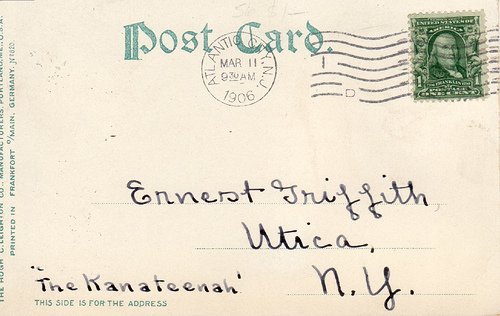 Post Card.
ATLANTIC CITY, N.J.
MAR 11
930 AM
1906
1
D
UNITED STATES OF
AMERICA
FRANKLIN
POSTAGE
ONE CENT
Ernest Griffith
Utica,
"The Kanateenah"
N.Y.
THIS SIDE IS FOR THE ADDRESS
THE HUGH C. LEIGHTON CO., MANUFACTURERS, PORTLAND, ME., U.S.A.
PRINTED IN FRANKFORT O/MAIN, GERMANY.